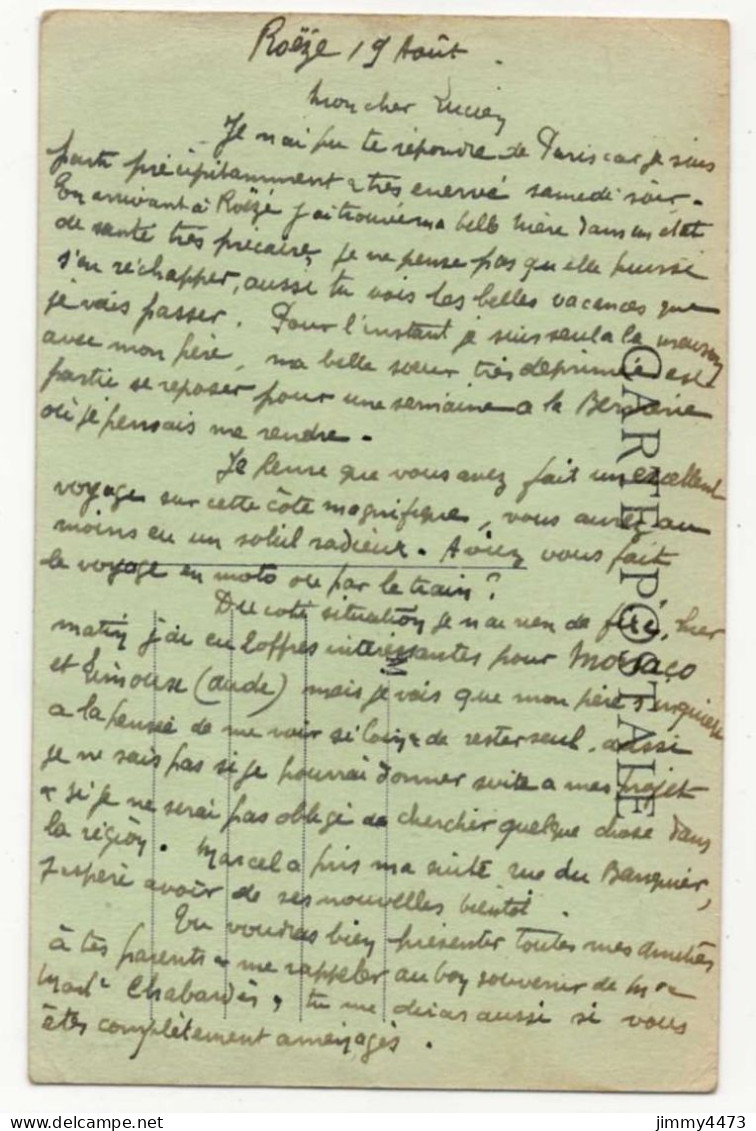 Roëzé 19 Août.
Mon cher Lucien
Je n'ai pu te répondre de Paris car je suis
parti précipitamment & très enervé samedi soir.
En arrivant à Roëzé j'ai trouvé ma belle Mère dans un état
de santé très précaire, je ne pense pas qu'elle puisse
s'en réchapper, aussi tu vois les belles vacances que
je vais passer. Pour l'instant je suis seul à la maison
avec mon père, ma belle sœur très deprimée est
partie se reposer pour une semaine a la Bersterie
où je pensais me rendre.
Je pense que vous avez fait un excellent
voyage sur cette côte magnifique, vous aurez au
moins eu un soleil radieux. Aviez vous fait
le voyage en moto ou par le train?
Du coté situation je n'ai rien de fixé, hier
matin j'ai eu offres intéressantes pour Monaco
et Limouse (aude) mais je vois que mon père s'inquiète
a la pensée de me voir si loin & de rester seul, aussi
je ne sais pas si je pourrai donner suite a mes projet
& si je ne serai pas obligé de chercher quelque chose dans
la région. Marcel a pris ma suite rue du Banquier,
j'espère avoir de ses nouvelles bientot.
Tu voudras bien présenter toutes mes amitiés
à tes parents & me rappeler au bon souvenir de Mr &
Mad^e Chabardès, tu me diras aussi si vous
êtes complètement aménagés.
CARTE POSTALE
M
jimmy4473